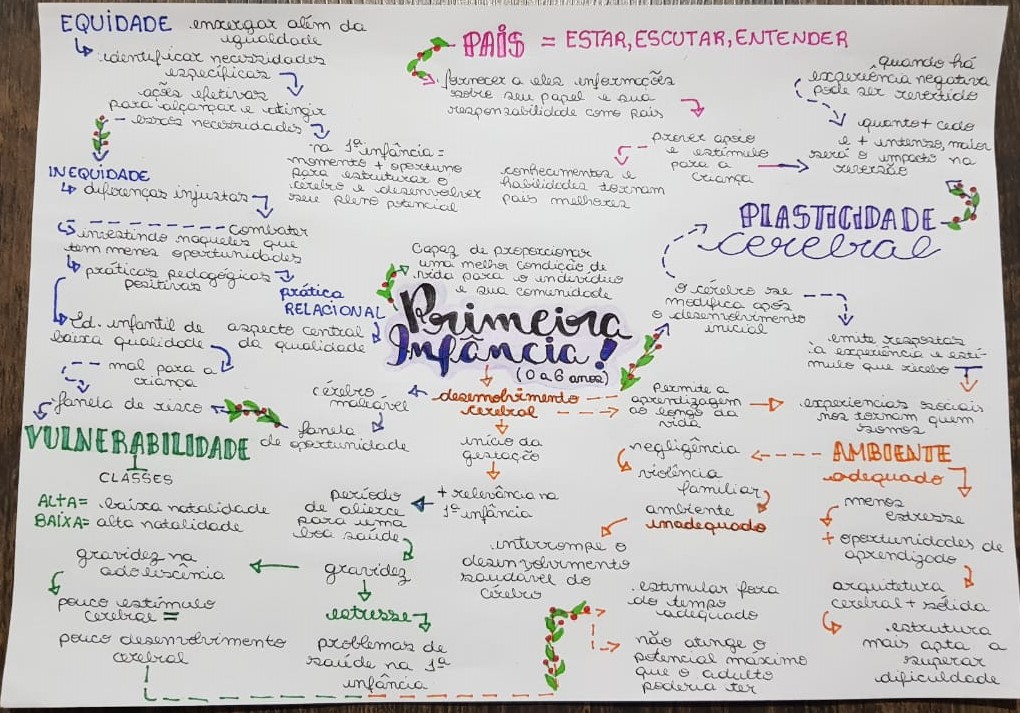 EQUIDADE enxergar além da
igualdade
identificar necessidades
específicas
ações efetivas
para alcançar e atingir
essas necessidades
na 1ª infância =
momento + oportuno
para estruturar o
cérebro e desenvolver
seu pleno potencial
INEQUIDADE
diferenças injustas
combater
investindo naqueles que
tem menos oportunidades
práticas pedagógicas
positivas
prática
RELACIONAL
aspecto central
da qualidade
Ed. infantil de
baixa qualidade
mal para a
criança
janela de risco
VULNERABILIDADE
CLASSES
ALTA = baixa natalidade
BAIXA = alta natalidade
PAIS = ESTAR, ESCUTAR, ENTENDER
fornecer a eles informações
sobre seu papel e sua
responsabilidade como pais
prover apoio
e estímulo
para a
criança
conhecimentos e
habilidades tornam
pais melhores
quando há
experiência negativa
pode ser revertido
quanto + cedo
e + intenso, maior
será o impacto na
reversão
PLASTICIDADE
cerebral
O cérebro se
modifica após
o desenvolvimento
inicial
emite respostas
à experiência e estí-
mulo que recebe
experiências sociais
nos tornam quem
somos
Capaz de proporcionar
uma melhor condição de
vida para o indivíduo
e sua comunidade
Primeira
Infância!
(0 a 6 anos)
desenvolvimento
cerebral
cérebro
maleável
janela
de oportunidade
permite a
aprendizagem
ao longo da
vida
início da
gestação
+ relevância na
1ª infância
período
de alicerce
para uma
boa saúde
gravidez
gravidez na
adolescência
pouco estímulo
cerebral =
pouco desenvolvimento
cerebral
estresse
problemas de
saúde na 1ª
infância
AMBIENTE
adequado
menos
estresse
+ oportunidades de
aprendizado
arquitetura
cerebral + sólida
estrutura
mais apta a
superar
dificuldade
negligência
violência
familiar
ambiente
inadequado
interrompe o
desenvolvimento
saudável do
cérebro
estimular fora
do tempo
adequado
não atinge o
potencial máximo
que o adulto
poderia ter